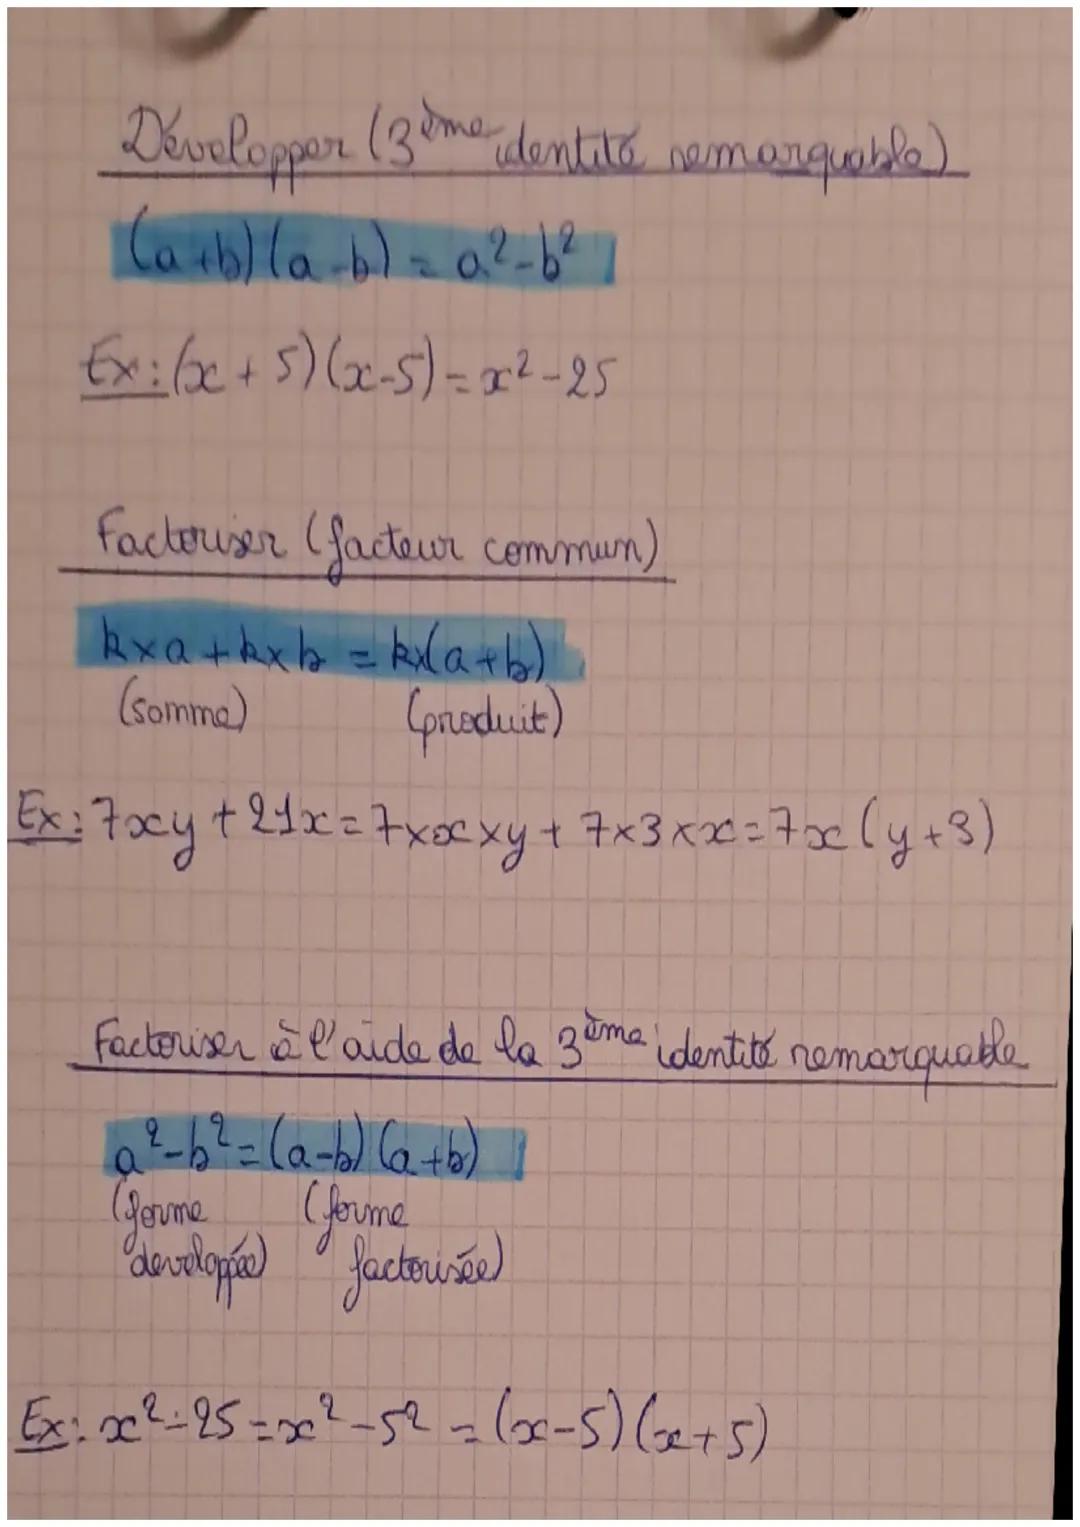 Développer (3ème identité remarquable)
(a+b)(a-b) = a²-b²
Ex: (x + 5)(x-5) = x² - 25
Factoriser (facteur commun)
k×a + k×b = k×(a+b)
(somme) (produit)
Ex: 7xy + 21x = 7×x×y + 7×3×x = 7x (y+3)
Factoriser à l'aide de la 3ème identité remarquable
a²-b² = (a-b) (a+b)
(forme (forme
developpée) factorisée)
Ex: x²-25 = x² - 5² = (x-5)(x+5)